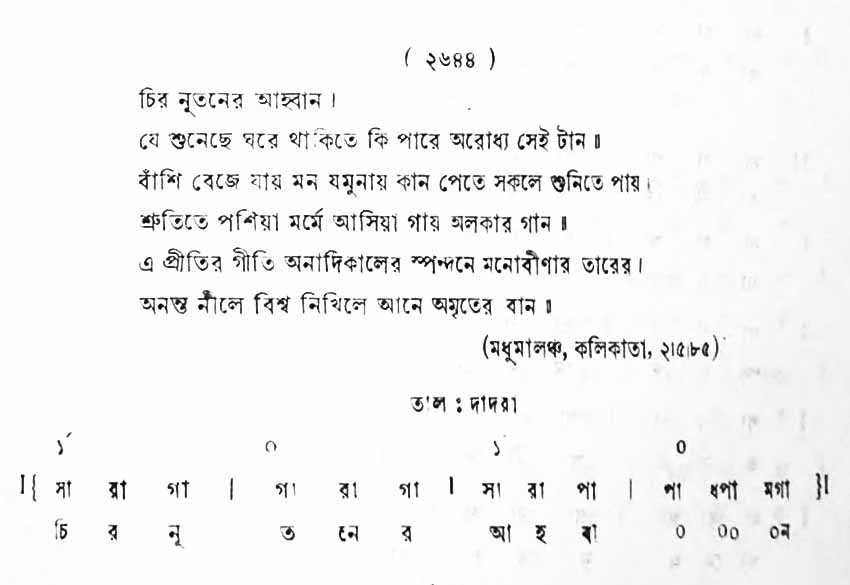 ( ২৬৪৪ )
চির নূতনের আহ্বান ।
যে শুনেছে ঘরে থাকিতে কি পারে অরোধ্য সেই টান ॥
বাঁশি বেজে যায় মন যমুনায় কান পেতে সকলে শুনিতে পায় ।
শ্রুতিতে পশিয়া মর্মে আসিয়া গায় অলকার গান ॥
এ প্রীতির গীতি অনাদিকালের স্পন্দনে মনোবীণার তারের ।
অনন্ত নীলে বিশ্ব নিখিলে আনে অমৃতের বান ॥
(মধুমালঞ্চ, কলিকাতা, ২।৫।৮৫)
তাল : দাদরা
১´ ০ ১´ ০
I{ সা রা গা | গা রা গা I সা রা পা | পা ধপা মগা }I
চি র নূ ত নে র আ হ্ বা ০ ০০ ০ন